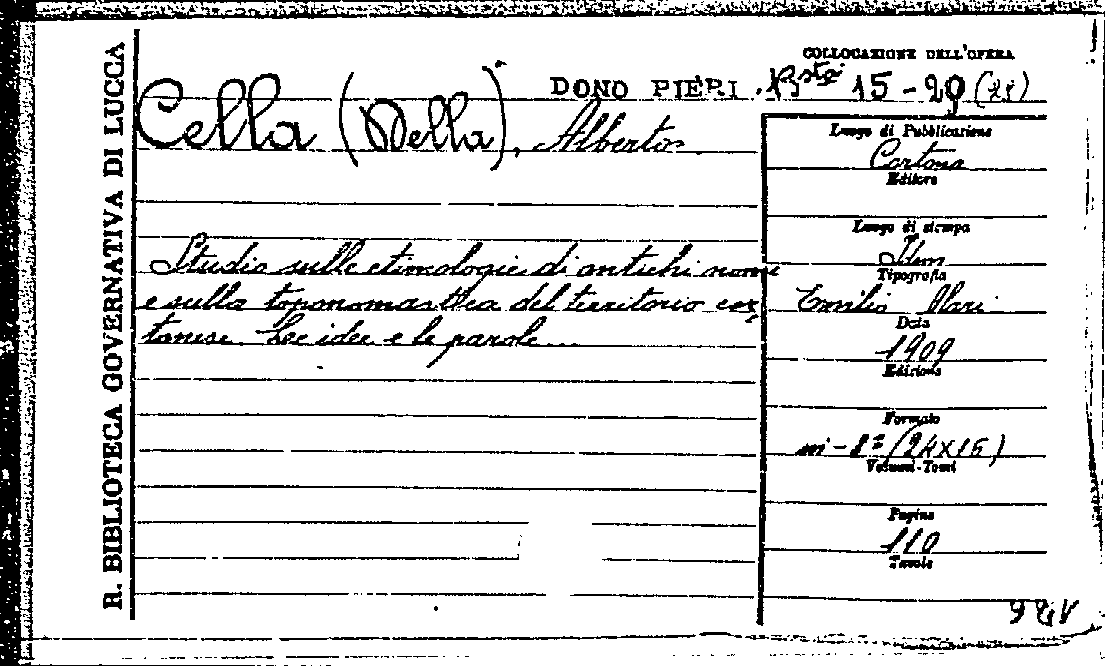 R. BIBLIOTECA GOVERNATIVA DI LUCCA
COLLOCAZIONE DELL'OPERA
DONO PIERI. Bsta 15-29 (21)
Cella (Della), Alberto.
Luogo di Pubblicazione
Cortona
Editore
Luogo di stampa
Idem
Studio sulle etimologie di antichi nomi
Tipografia
e sulla toponomastica del territorio cor=
Emilio Alari
tonese. Le idee e le parole...
Data
1909
Edizione
Formato
in-8º (24x15)
Volumi-Tomi
Pagine
110
Tavole